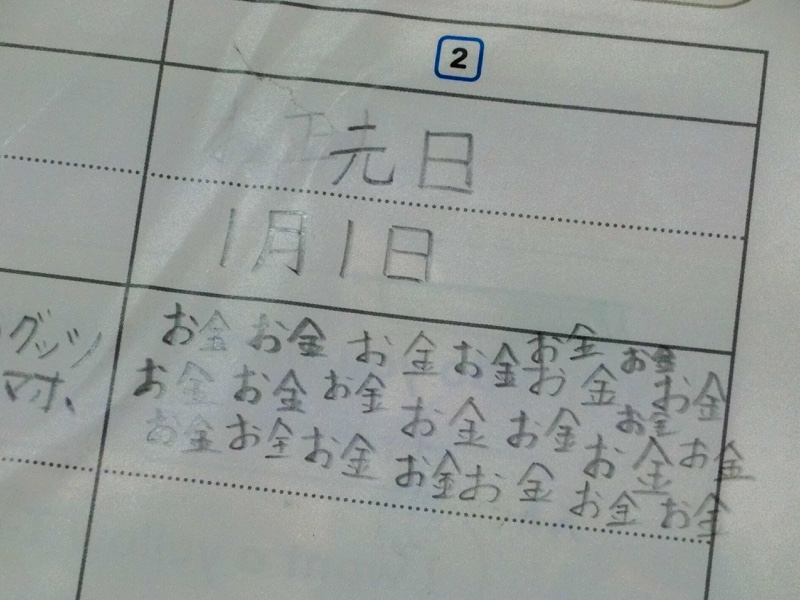 2
元日
1月1日
グッツ
マホ、
お金 お金 お金 お金 お金 お金
お金 お金 お金 お金 お金
お金 お金 お金 お金 お金 お金 お金 お金
お金 お金 お金 お金